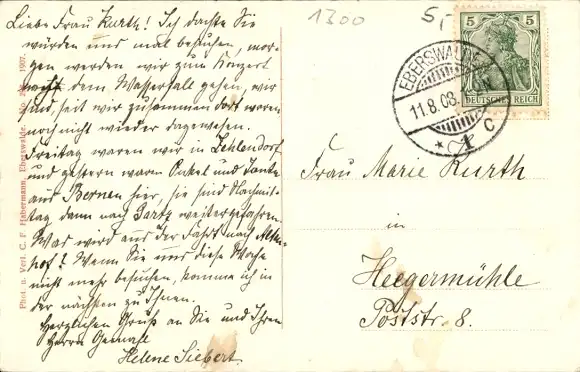 Liebe Frau Kurth! Ich dachte Sie
würden uns mal besuchen, mor-
gen werden wir zum Konzert
nach dem Wasserfall gehen, wir
sind, seit wir zusammen dort waren
noch nicht wieder dagewesen.
Freitag waren wir in Zehlendorf
und gestern waren Onkel und Tante
aus Bernen hier, sie sind Nachmit-
tag dann nach Gartz weitergefahren.
Was wird aus der Fahrt nach Alten-
hof? Wenn Sie uns diese Woche
nicht mehr besuchen, komme ich in
der nächsten zu Ihnen.
Herzlichen Gruß an Sie und Ihren
Herrn Gemahl
Helene Siebert.
Phot. u. Verl. C. F. Habermann, Eberswalde. 1907.
1300
5,
5 5
DEUTSCHES REICH
EBERSWALDE
11.8.08.
* 1 c
Frau Marie Kurth
in
Heegermühle
Poststr. 8.